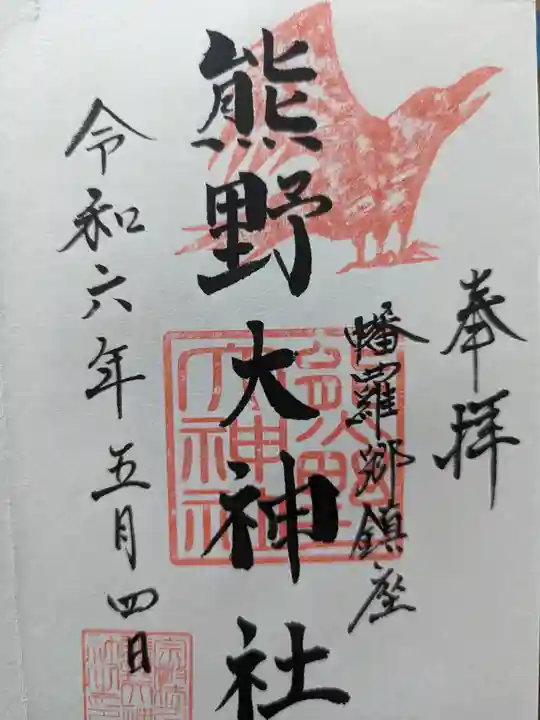 奉拝
幡羅郷鎮座
熊野大神社
令和六年五月四日
熊野
大神社